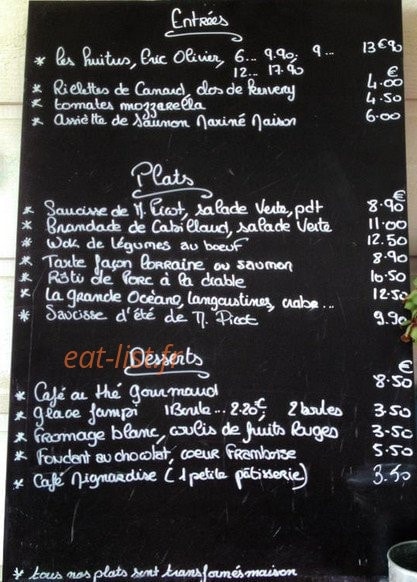 Entrées
* Les huitres, Eric Olivier, 6... 9.90. 9... 13€90
12... 17.90
€
* Rielettes de Canard, clos de 4.00
* tomates mozzarella 4.50
* Assiette de Saumon Mariné Maison 6.00
Plats
€
* Saucisse de M. Picot, salade Verte, pdt 8.90
* Brandade de Cabillaud, salade Verte 11.00
* Wok de légumes au boeuf 12.50
* Tarte façon Lorraine ou saumon 8.90
* Rôti de Porc à la diable 10.50
* La grande Océane, langoustines, crabe... 12.50
* Saucisse d'été de M. Picot 9.90
eat-list.fr
Desserts
€
* Café ou thé Gourmand 8.50
* glace 1 Boule... 2.20€, 2 boules 3.50
* Fromage blanc, coulis de fruits Rouges 3.50
* Fondant au chocolat, coeur Framboise 5.50
* Café Mignardise (1 petite pâtisserie) 3.50
* tous nos plats sont transformés maison